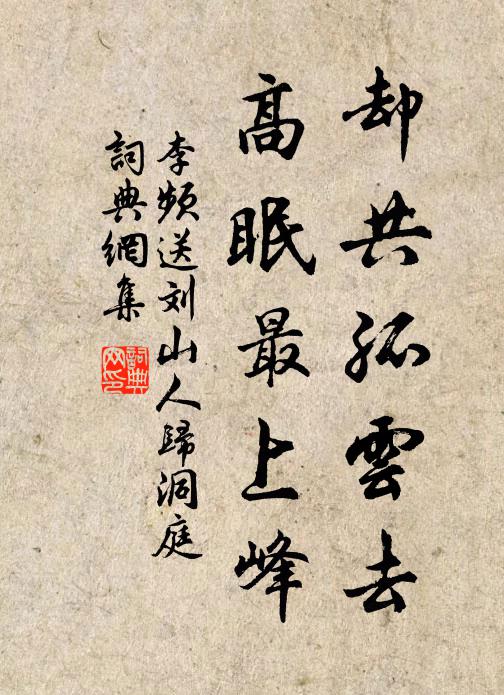 却共孤雲去
高眠最上峰
李频送刘山人歸洞庭
詞典網集
詞典网印